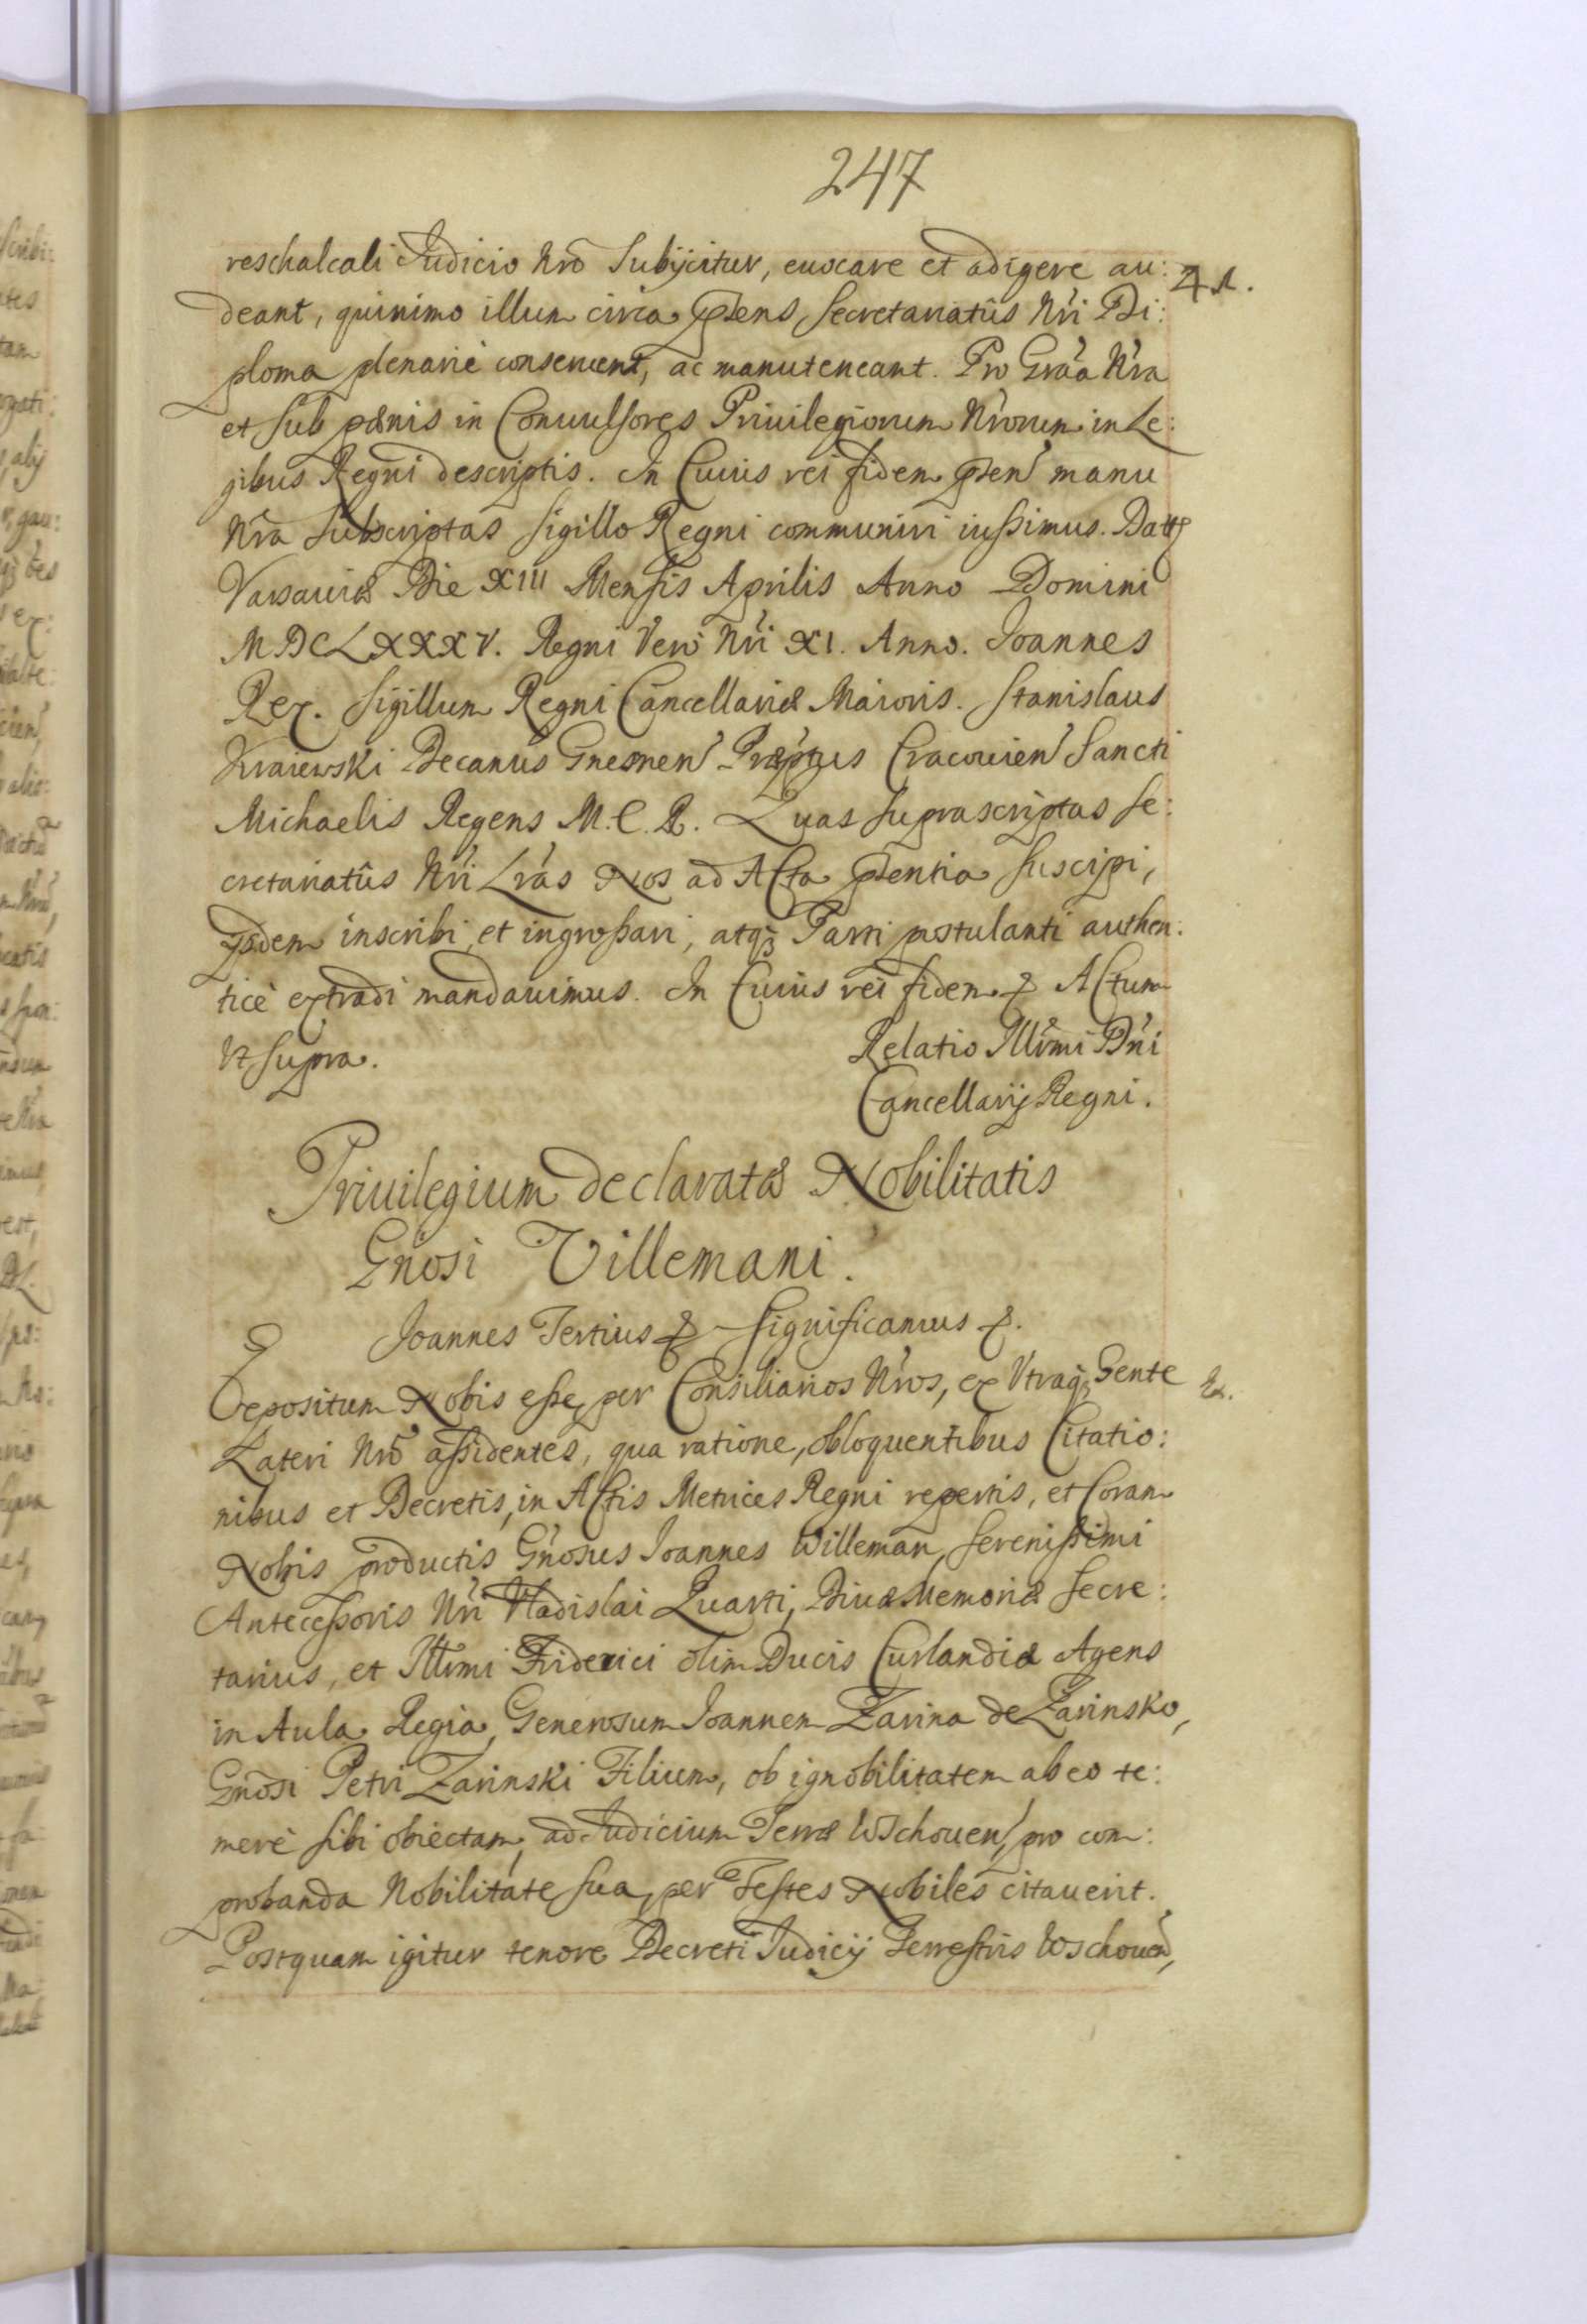 247
reschalcali Judicio Nrõ Subijcitur, euocare et adigere au:
deant, quinimo illum circa pñens Secretariatûs Nri Di:
ploma plenariè conseruent, ac manuteneant. Pro Gra͂a Nra
et sub pænis in Conuulsores Priuilegiorum Nrorum in Le:
gibus Regni descriptis. In Cuius rei fidem pñen manu
Nra Subscriptas Sigillo Regni communiri iussimus. Datt
Varsauiæ Die XIII Mensis Aprilis Anno Domini
MDCLXXXV. Regni Vero Nri XI. Anno. Joannes
Rex. Sigillum Regni Cancellariæ Maioris. Stanislaus
Kraiewski Decanus Gnesnen Præptus Cracouien Sancti
Michaelis Regens M.C.R. Quas suprascriptas Se:
cretariatûs Nri Lras Nos ad Acta pñentia suscipi,
ijsdem inscribi et ingrossari, atq; Parti postulanti authen:
ticè extradi mandauimus. In Cuius rei fidem & Actum
Vt supra.
Relatio Illmi Dni
Cancellarij Regni.
Priuilegium declaratæ Nobilitatis
Gnosi Villemani.
Joannes Tertius & Significamus &.
Expositum Nobis esse, per Consiliarios Nros, ex Vtraq; Gente
Lateri Nrõ assidentes, qua ratione, obloquentibus Citatio:
nibus et Decretis, in Actis Metrices Regni repertis, et Coram
Nobis productis Gnosus Joannes Willeman, Serenissimi
Antecessoris Nri Vladislai Quarti, Diuæ Memoriæ Secre:
tarius, et Illmi Friderici olim Ducis Curlandiæ Agens
in Aula Regia, Generosum Joannem Zarina de Zarinsko,
Gnosi Petri Zarinski Filium, ob ignobilitatem ab eo te:
merè sibi obiectam, ad Judicium Terræ Wschouen, pro com:
probanda Nobilitate sua, per Testes Nobiles citauerit.
Postquam igitur tenore Decreti Judicij Terrestris Wschouen,